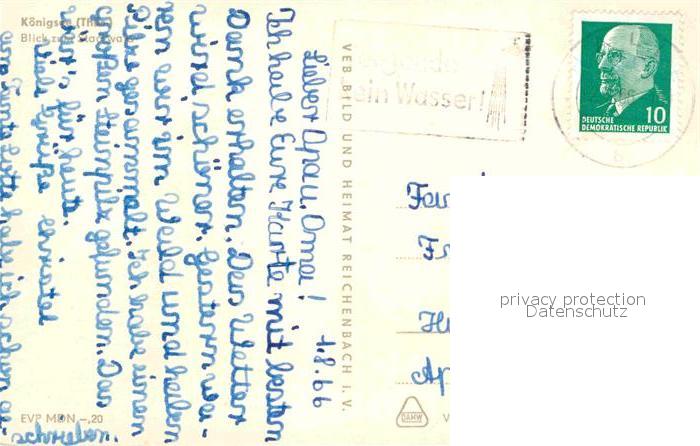 Königsee (Thür.)
Blick zum Stadtwald
Lieber Opa u. Oma!
1.8.66
Ich habe Eure Karte mit besten
Dank erhalten. Das Wetter
wird schöner. Gestern wa-
ren wir im Wald und haben
Pilze gesammelt. Ich habe einen
großen Steinpilz gefunden. Das
wär's für heute.
Viele Grüße
an Tante Lotte habe ich schon ge-
schrieben.
EVP MDN -,20
VEB BILD UND HEIMAT REICHENBACH I. V.
DAMW
V
ein Wasser!
10
DEUTSCHE
DEMOKRATISCHE REPUBLIK
privacy protection
Datenschutz